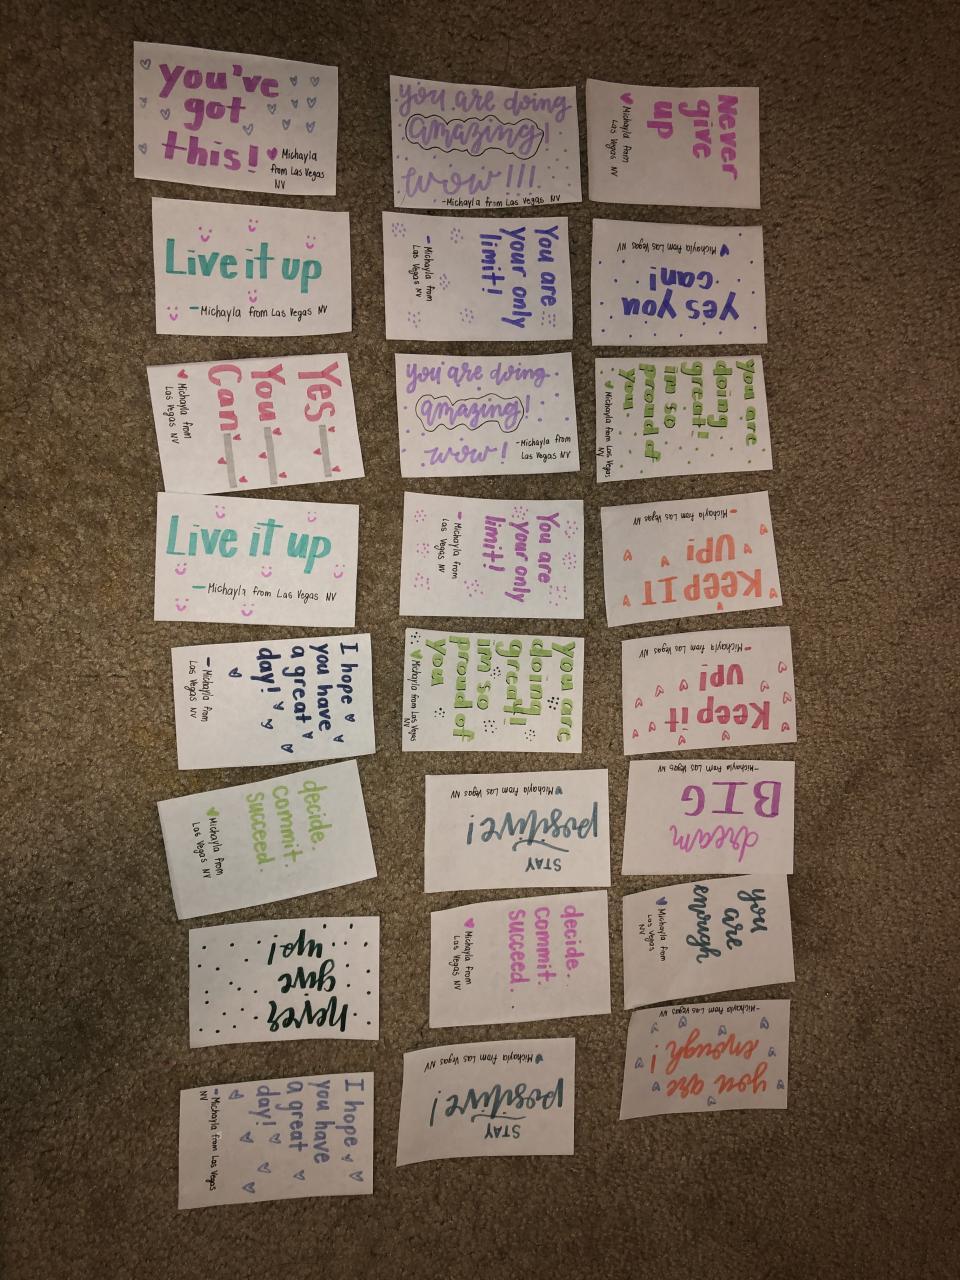 you've
got
this!
♥ Michayla
from Las Vegas
NV
Live it up
- Michayla from Las Vegas NV
Yes
You
Can
♥ Michayla from
Las Vegas NV
Live it up
- Michayla from Las Vegas NV
I hope
you have
a great
day!
- Michayla from
Las Vegas NV
decide.
commit.
succeed.
♥ Michayla from
Las Vegas NV
never
give
up!
I hope
you have
a great
day!
- Michayla from Las Vegas
NV
you are doing
amazing!
wow!!!
- Michayla from Las Vegas NV
You are
your only
limit!
- Michayla from
Las Vegas NV
you are doing
amazing!
wow!
- Michayla from
Las Vegas NV
You are
your only
limit!
- Michayla from
Las Vegas NV
you are
doing
great!
im so
proud of
you
♥ Michayla from Las Vegas
NV
STAY
positive!
♥ Michayla from Las Vegas NV
decide.
commit.
succeed.
♥ Michayla from
Las Vegas NV
STAY
positive!
♥ Michayla from Las Vegas NV
Never
give
up
♥ Michayla from
Las Vegas NV
Yes You
can!
♥ Michayla from Las Vegas NV
you are
doing
great!
im so
proud of
you.
♥ Michayla from Las Vegas
NV
KEEP IT
UP!
- Michayla from
Las Vegas NV
Keep it
UP!
- Michayla from
Las Vegas NV
dream
BIG
- Michayla from Las Vegas
NV
you
are
enough
♥ Michayla from
Las Vegas
NV
you are
enough!
- Michayla from Las Vegas NV